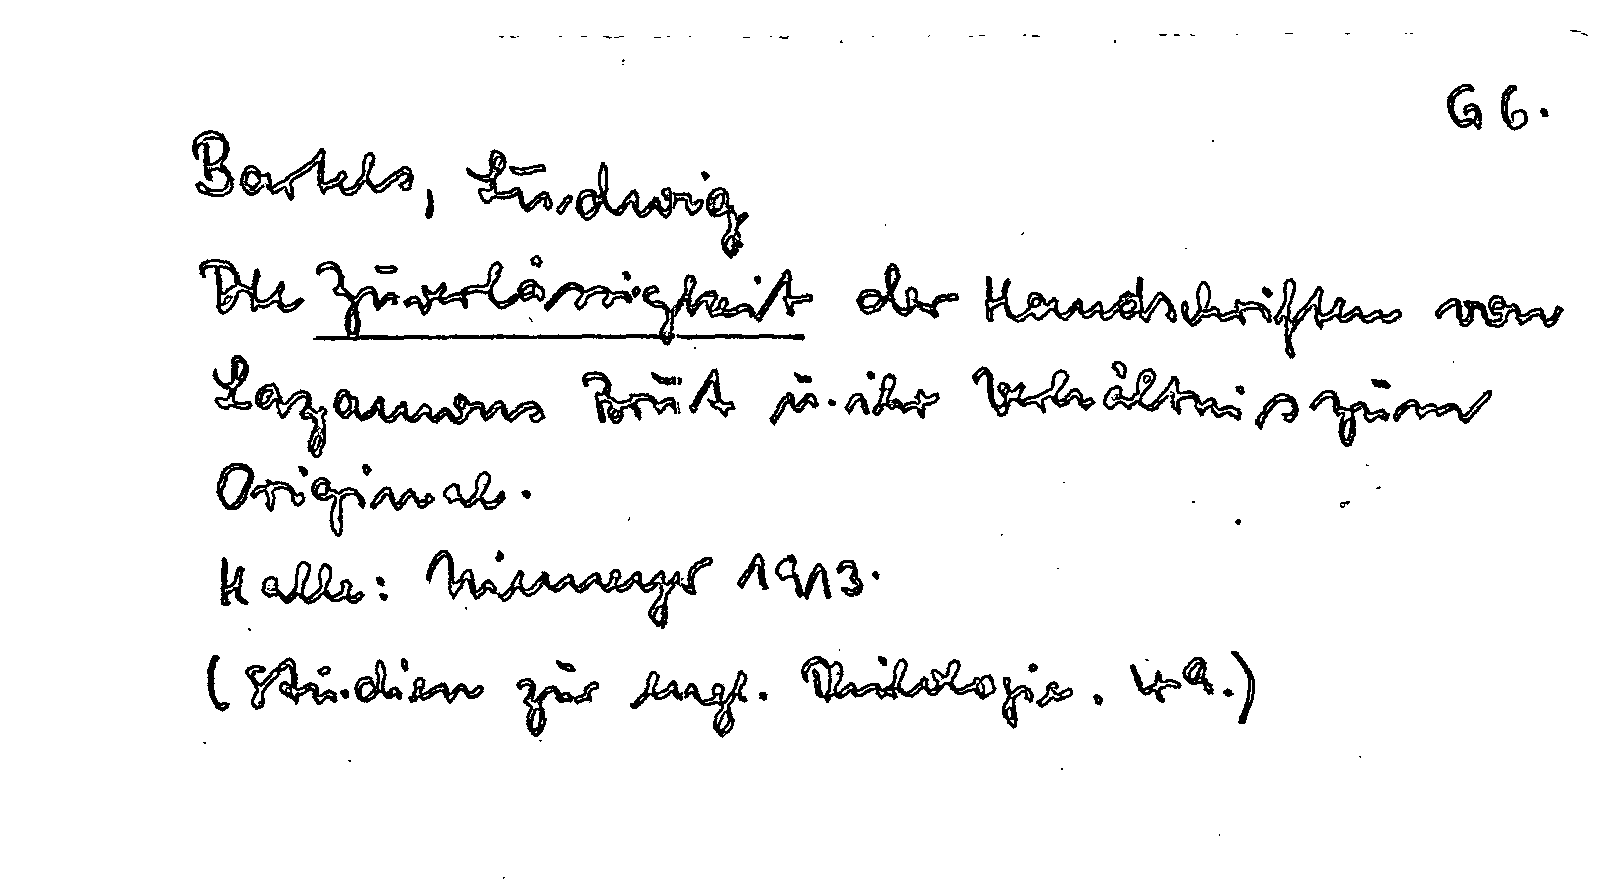 G 6.
Bartels, Ludwig
Die Zuverlässigkeit der Handschriften von
Lazamons Brut u. ihr Verhältnis zum
Original.
Halle: Niemeyer 1913.
(Studien zur engl. Philologie. 49.)